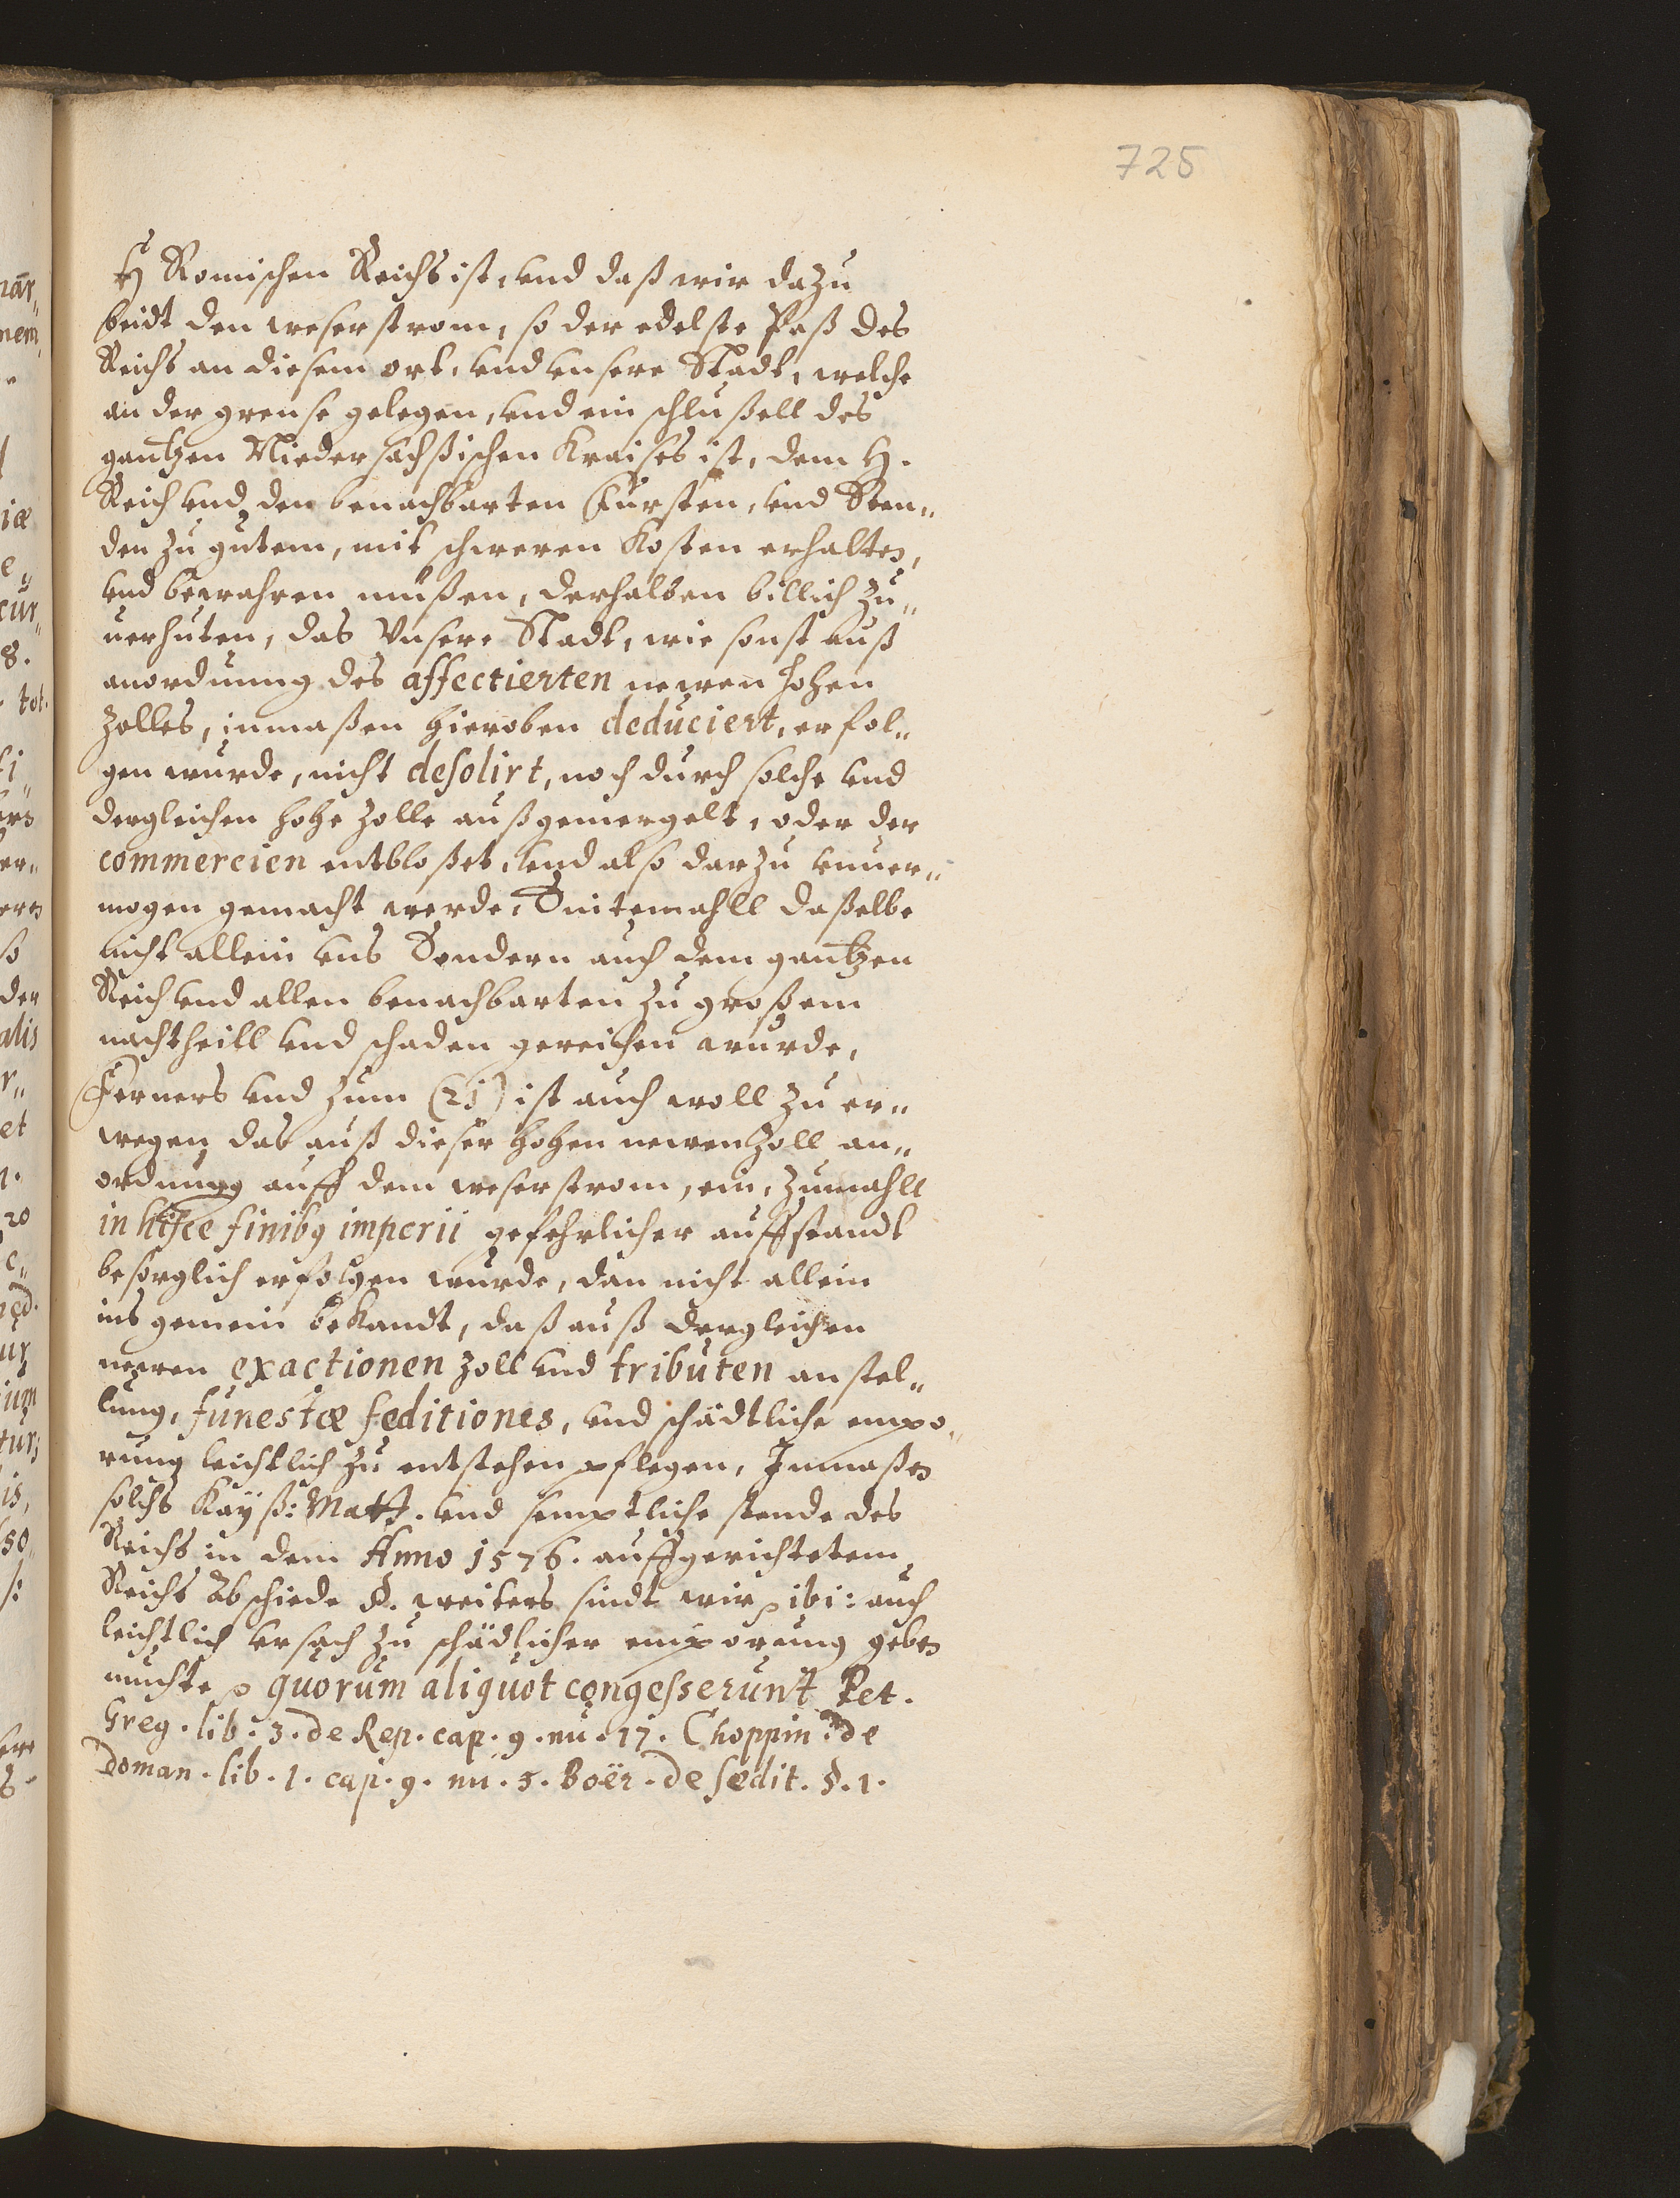 725
H Romischen Reichs ist, vnd daß wir dazu
beidt den weserstrom, so der edelste Paß des
Reichs an diesem ort, vnd vnsere Stadt, welche
an der grense gelegen, vnd ein schlußell des
gantzen Niedersachßischen Kraises ist, dem H.
Reich vnd den benachbarten Fursten, vnd Sten„
den zu gutem, mit schweren Kosten erhalten,
vnd bewahren müßen, derhalben billich zu„
uerhuten, das Vnsere Stadt, wie sonst auß
anordnung des affectierten newen hohen
Zolles, inmaßen hieroben deduciert, erfol„
gen wurde, nicht desolirt, noch durch solche vnd
dergleichen hohe Zolle außgemergelt, oder der
commercien entbloßet, vnd also darzu vnuer„
mogen gemacht werde, Sintemahll daßelbe
nicht allein vns Sondern auch dem gantzen
Reich vnd allen benachbarten zu großem
nachtheill vnd schaden gereichen wurde,
Ferners vnd zum (21) ist auch woll zu er„
wegen das auß dieser hohen newen Zoll an„
ordnung auff dem weserstrom, ein, zumahll
in hisce finibus imperii gefehrlicher auffstandt
besorglich erfolgen wurde, dan nicht allein
ins gemein bekandt, daß auß dergleichen
newen exactionen Zoll vnd tributen anstel„
lung, funestæ seditiones, vnd schädtliche empo„
rung leichtlich zu entstehen pflegen, Inmaßen
solchs Kayß: Matt. vnd semptliche stende des
Reichs in dem Anno 1576. auffgerichtetem
Reichs Abschiede §. weiters sindt wir p ibi: auch
leichtlich vrsach zu schädlicher emporung geben
muchte p quorum aliquot congesserunt Pet.
Greg. lib: 3. de Rep. cap. 9. nu. 17. Choppin. de
Doman. lib. 1. cap. 9. nu. 5. Boër. de sedit. §. 1.